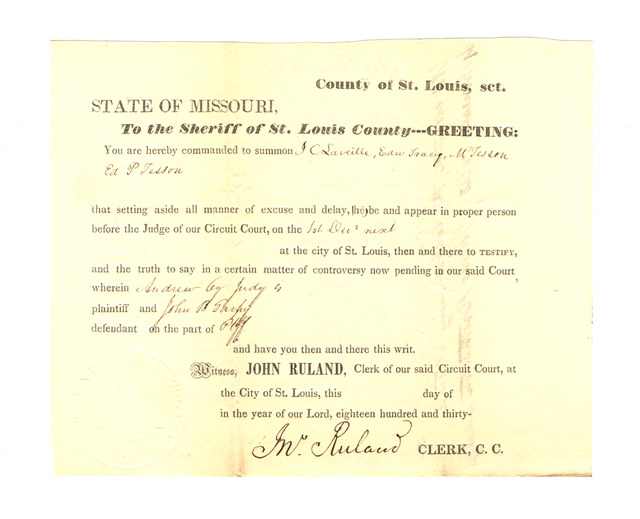 County of St. Louis, sct.
STATE OF MISSOURI,
To the Sheriff of St. Louis County---GREETING:
You are hereby commanded to summon J C Laveille, Edw Tracy, M Tesson
Ed P Tesson
that setting aside all manner of excuse and delay, they be and appear in proper person
before the Judge of our Circuit Court, on the 1st Decr next
at the city of St. Louis, then and there to TESTIFY,
and the truth to say in a certain matter of controversy now pending in our said Court,
wherein Andrew by Judy
plaintiff and John B Sarpy
defendant on the part of Plff
and have you then and there this writ.
Witness, JOHN RULAND, Clerk of our said Circuit Court, at
the City of St. Louis, this day of
in the year of our Lord, eighteen hundred and thirty-
Jno. Ruland CLERK, C. C.